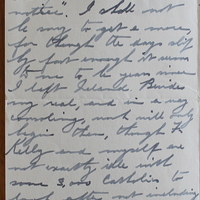 notice". I shall not
be sorry to get a move,
for though the days slip
by fast enough it seems
to me to be years since
I left Ireland. Besides
my real, and in a way
only
begin then, though Fr
Kelly and myself are
not exactly idle with
some 3,000 Catholics to
look after not including